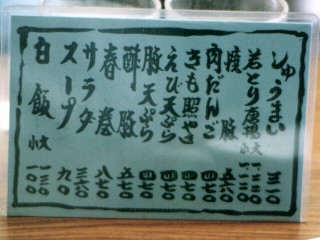 しゅうまい 三一〇
若とり唐揚 大 一、二三〇 小
焼豚 五六〇
肉だんご 四七〇
きも照やき 四七〇
えび天ぷら 四七〇
豚天ぷら 四七〇
酢豚 五七〇
春巻 八七〇
サラダ 三六〇
スープ 九〇
白飯 大 一三〇 小 一〇〇